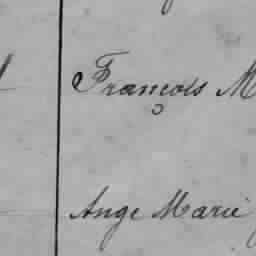 François M
Ange Marie